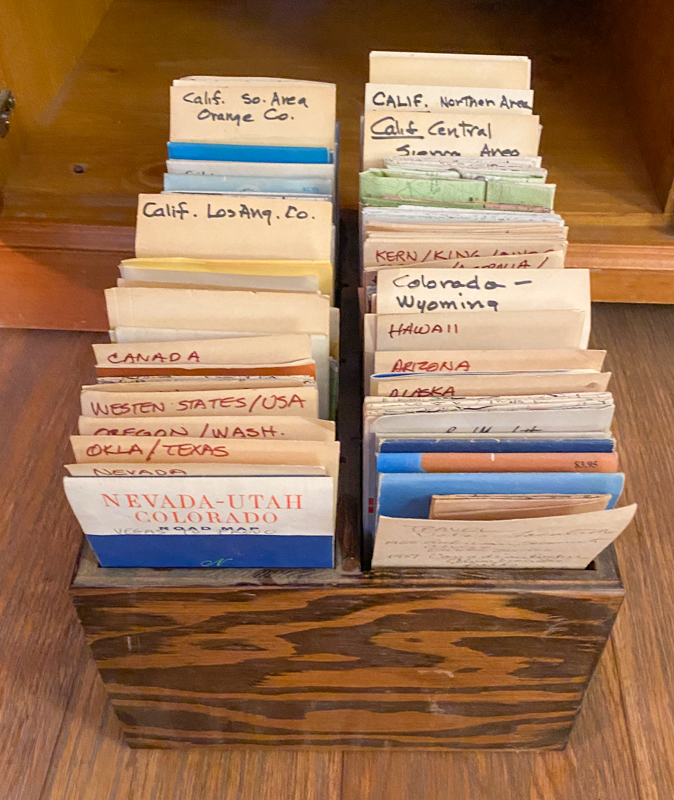 Calif. So. Area
Orange Co.
Calif. Los Ang. Co.
CANADA
WESTEN STATES/USA
OREGON/WASH.
OKLA/TEXAS
NEVADA
NEVADA-UTAH
COLORADO
ROAD MAP
CALIF. Northern Area
Calif Central
Sierra Area
KERN/KING
Colorado -
Wyoming
HAWAII
ARIZONA
ALASKA
$3.95